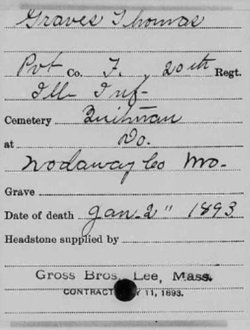 Graves Thomas
Pvt Co. F, 20th Regt.
Ill Inf-
Cemetery Quitman
at Do.
Nodaway Co Mo.
Grave
Date of death Jan-2" 1893
Headstone supplied by
Gross Bros., Lee, Mass.
CONTRACT Y 11, 1893.